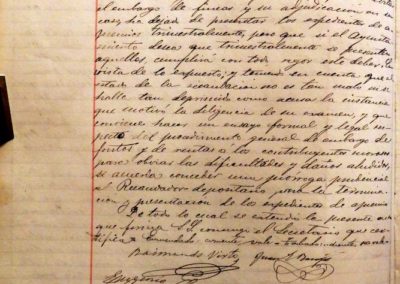 el embargo de fincas y su adjudicación
ha dejado de presentar los expedientes de a-
premios trimestralmente, pero que si el Ayunta-
miento desea que trimestralmente se presenten
aquellos, cumplirá con todo rigor este deber. En
vista de lo expuesto, y teniendo en cuenta que el
estado de la recaudación no es tan malo ni se
halla tan deprimido como acusa la instancia
que motivó la diligencia de su examen, y que
conviene hacer un ensayo formal y legal
del procedimiento general de embargo de
frutos y de rentas a los contribuyentes morosos
para obviar las dificultades y daños aludidos,
se acuerda conceder una prórroga prudencial
al Recaudador-depositario para la termina-
ción y presentación de los expedientes de apremio
De todo lo cual se extiende la presente acta
que firma S.S. conmigo el Secretario que cer-
tifico
Raimundo
Juan
Eugenio